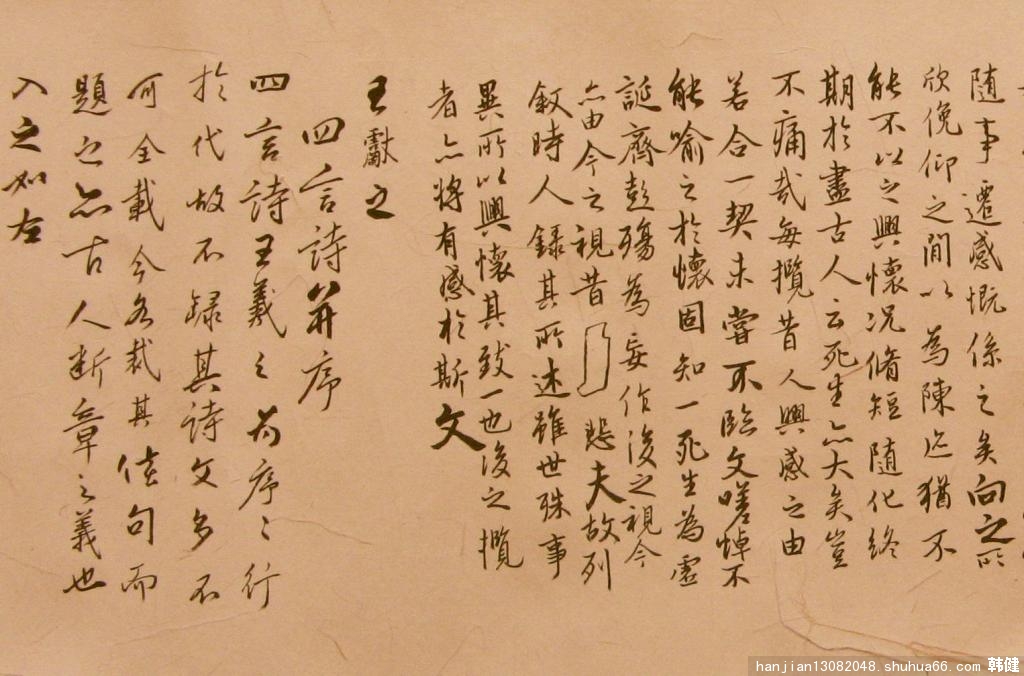 隨事遷感慨係之矣向之所
欣俛仰之間以為陳迹猶不
能不以之興懷况脩短隨化終
期於盡古人云死生亦大矣豈
不痛哉每攬昔人興感之由
若合一契未嘗不臨文嗟悼不
能喻之於懷固知一死生為虛
誕齊彭殤為妄作後之視今
亦由今之視昔悲夫故列
敘時人錄其所述雖世殊事
異所以興懷其致一也後之攬
者亦將有感於斯文
王獻之
四言詩并序
四言詩王羲之為序序行
於代故不録其詩文多不
可全載今各裁其佳句而
題之亦古人断章之義也
入之如左
hanjian13082048.shuhua66.com 韩健